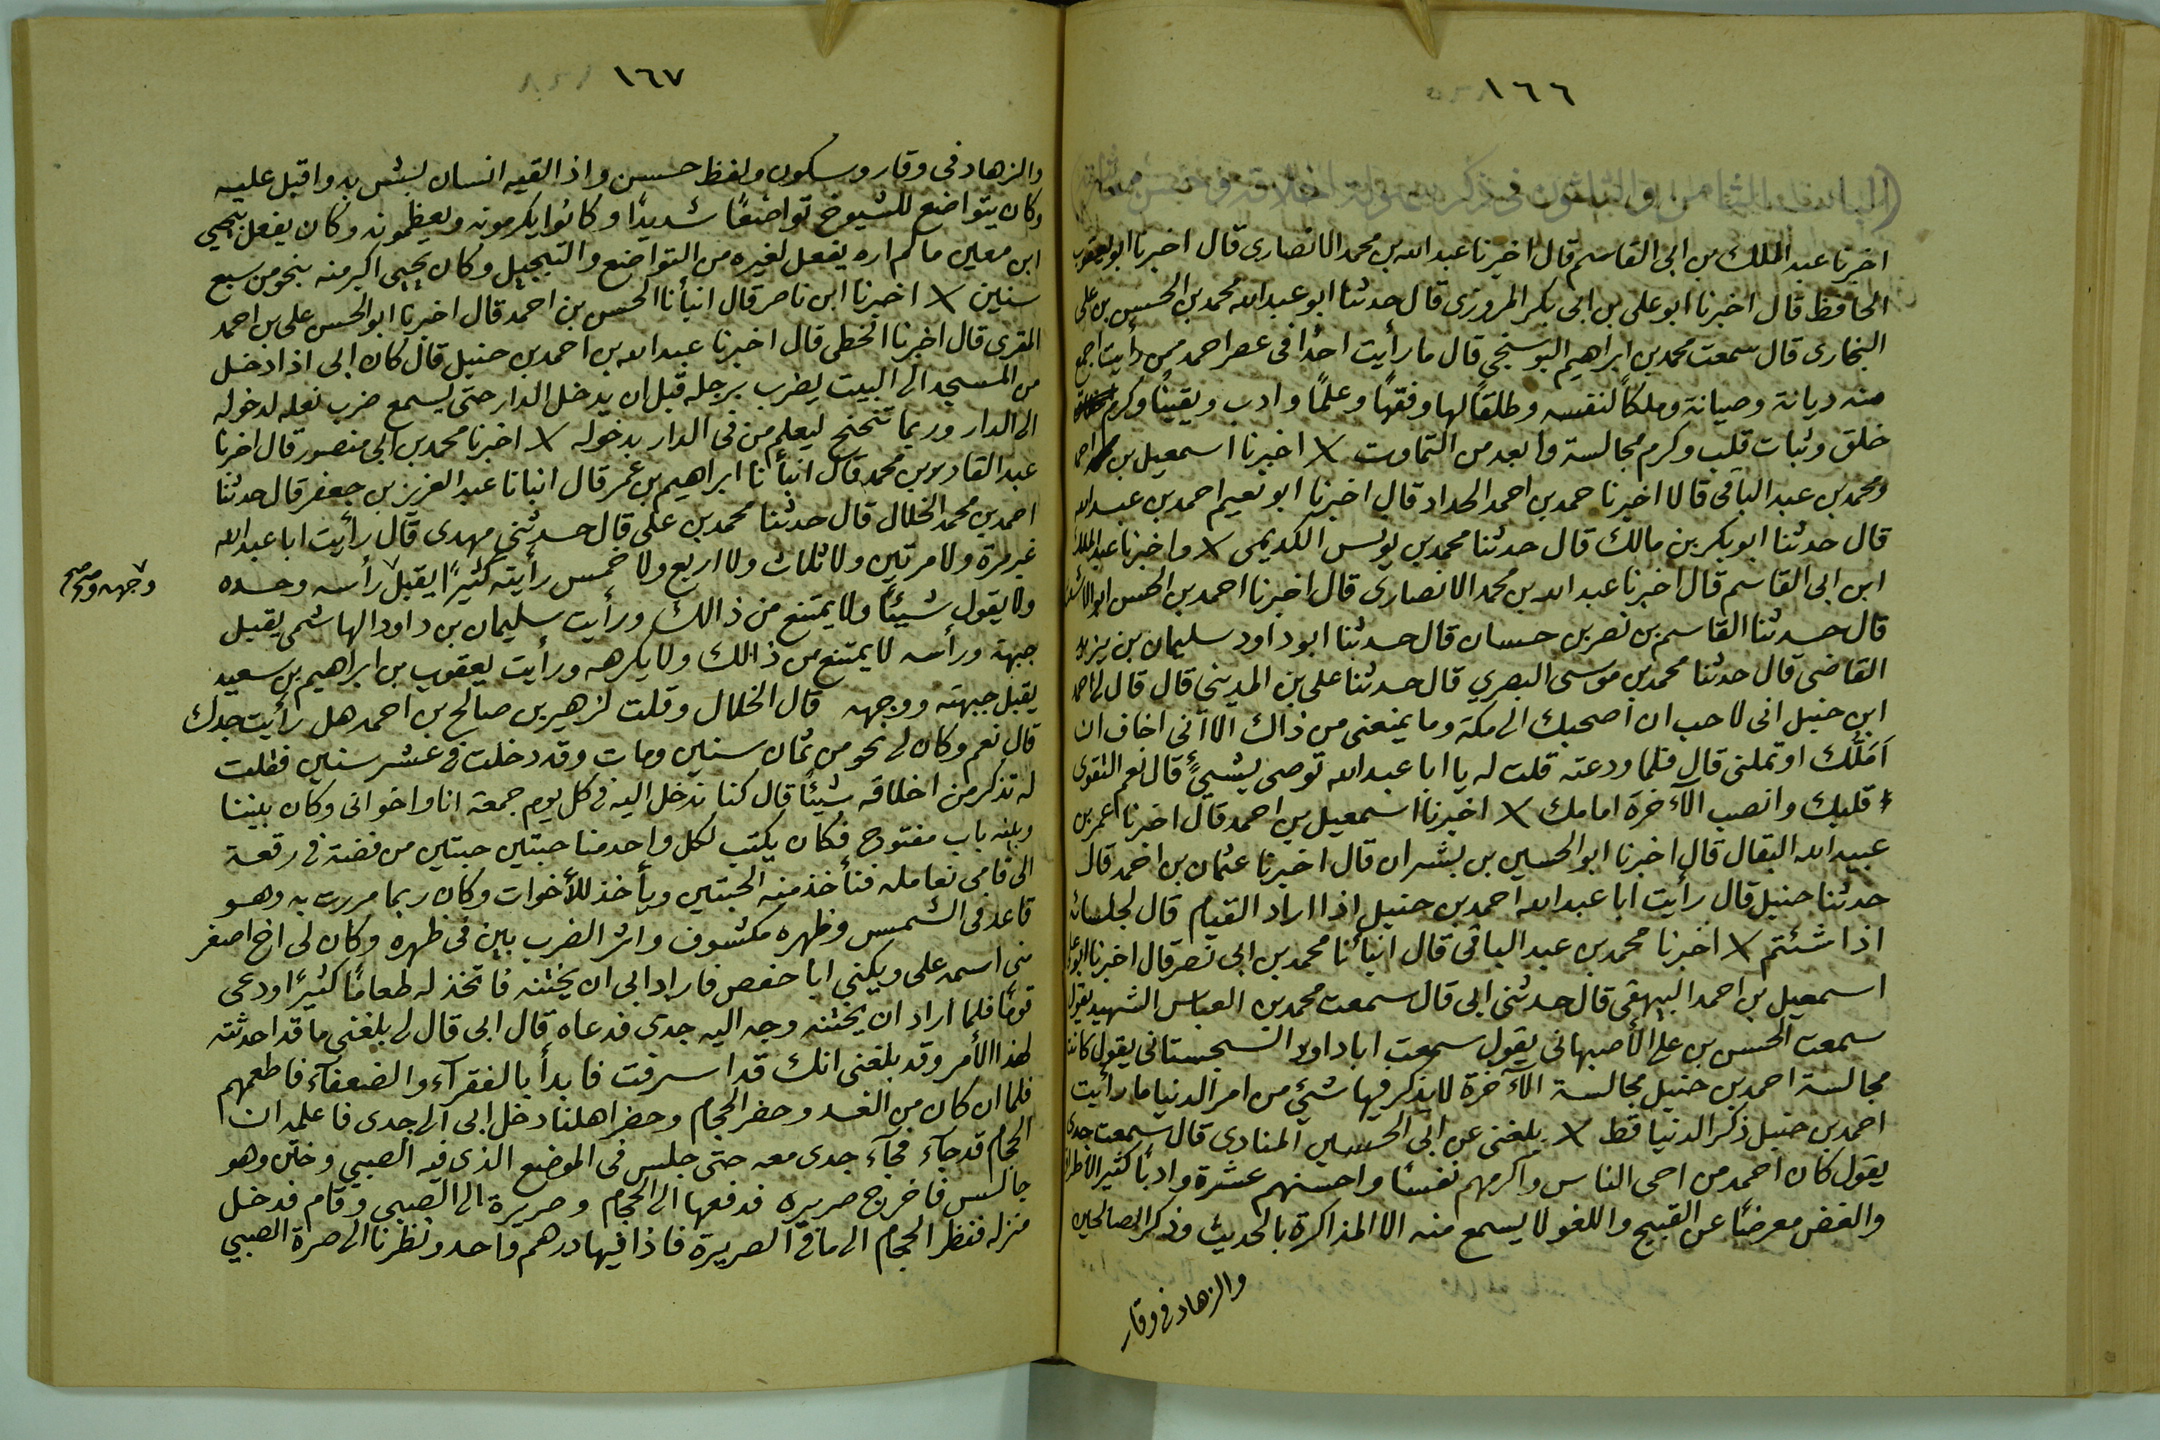 ١٦٦
(الباب الثامن والثلثون في ذكر
اخبرنا عبد الملك بن ابى القاسم قال اخبرنا عبد الله بن محمد الانصارى قال اخبرنا ابو يعقوب
الحافظ قال اخبرنا ابو على بن ابى بكر المروزى قال حدثنا ابو عبد الله محمد بن الحسين بن على
البخارى قال سمعت محمد بن ابراهيم البوشنجى قال ما رأيت احدًا فى عصر احمد ممن رأيت اجمع
منه ديانة وصيانة وملكًا لنفسه وطلقًا لها وفقهًا وعلمًا وادب ويقينًا وكرم
خلق وثبات قلب وكرم مجالسة وابعد من التماوت ✕ اخبرنا اسمعيل بن احمد
ومحمد بن عبد الباقى قالا اخبرنا حمد بن احمد الحداد قال اخبرنا ابو نعيم احمد بن عبد الله
قال حدثنا ابو بكر بن مالك قال حدثنا محمد بن يونس الكديمى ✕ واخبرنا عبد الملك
ابن ابى القاسم قال اخبرنا عبد الله بن محمد الانصارى قال اخبرنا احمد بن الحسن ابو الاشعث
قال حدثنا القاسم بن نصر بن حسان قال حدثنا ابو داود سليمان بن يزيد
القاضى قال حدثنا محمد بن موسى البصري قال حدثنا على بن المديني قال قال لى احمد
ابن حنبل انى لاحب ان اصحبك الى مكة وما يمنعنى من ذاك الا أنى اخاف ان
اَمَلَّك او تملنى قال فلما ودعته قلت له يا ابا عبد الله توصى بشيئٍ قال نعم التقوى
قلبك وانصب الآخرة امامك ✕ اخبرنا اسمعيل بن احمد قال اخبرنا عمر بن
عبيد الله البقال قال اخبرنا ابو الحسين بن بشران قال اخبرنا عثمان بن احمد قال
حدثنا حنبل قال رأيت ابا عبد الله احمد بن حنبل اذا اراد القيام قال لجلسائه
اذا شئتم ✕ اخبرنا محمد بن عبد الباقى قال انبأنا محمد بن ابى نصر قال اخبرنا ابو على
اسمعيل بن احمد البيهقى قال حدثنى ابى قال سمعت محمد بن العباس الشهيد يقول
سمعت الحسن بن على الأصبهانى يقول سمعت ابا داود السجستانى يقول كانت
مجالسة احمد بن حنبل مجالسة الآخرة لا يذكر فيها شئي من امر الدنيا ما رأيت
احمد بن حنبل ذكر الدنيا قط ✕ بلغنى عن ابى الحسين المنادى قال سمعت جدى
يقول كان احمد من احى الناس واكرمهم نفسًا واحسنهم عشرة وادبًا كثير الاطراق
والغض معرضًا عن القبيح واللغو لا يسمع منه الا المذاكرة بالحديث وذكر الصالحين
والزهاد فى وقار
١٦٧
والزهاد فى وقار وسكون ولفظ حسن واذا لقيه انسان بش به واقبل عليه
وكان يتواضع للشيوخ تواضعًا شديدًا وكانوا يكرمونه ويعظمونه وكان يفعل بيحيى
ابن معين ما لم اره يفعل لغيره من التواضع والتبجيل وكان يحيى اكبر منه بنحو من سبع
سنين ✕ اخبرنا ابن ناصر قال انبأنا الحسن بن احمد قال اخبرنا ابو الحسن على بن احمد
المقرى قال اخبرنا الخطى قال اخبرنا عبد الله بن احمد بن حنبل قال كان ابى اذا دخل
من المسجد الى البيت يضرب برجله قبل ان يدخل الدار حتى يسمع ضرب نعله لدخوله
الى الدار وربما تنحنح ليعلم من فى الدار بدخوله ✕ اخبرنا محمد بن ابى منصور قال اخبرنا
عبد القادر بن محمد قال انبأنا ابراهيم بن عمر قال انبانا عبد العزيز بن جعفر قال حدثنا
احمد بن محمد الخلال قال حدثنا محمد بن على قال حدثنى مهدى قال رأيت ابا عبد الله
غير مرة ولا مرتين ولا ثلاث ولا اربع ولا خمس رأيته كثيرًا يقبل رأسه وخده
وجهه و صح
ولا يقول شيئًا ولا يمتنع من ذالك ورأيت سليمان بن داود الهاشمى يقبل
جبهة ورأسه لا يمتنع من ذالك ولا يكرهه ورأيت يعقوب بن ابراهيم بن سعيد
يقبل جبهته ووجهه قال الخلال وقلت لزهير بن صالح بن احمد هل رأيت جدك
قال نعم وكان لى نحو من ثمان سنين ومات وقد دخلت فى عشر سنين فقلت
له تذكر من اخلاقه شيئًا قال كنا ندخل اليه فى كل يوم جمعة انا واخوانى وكان بيننا
وبينه باب مفتوح فكان يكتب لكل واحد منا حبتين حبتين من فضة فى رقعة
الى فامى نعامله فنأخذ منه الحبتين ويأخذ للأخوات وكان ربما مررت به وهو
قاعد فى الشمس وظهره مكشوف واثر الضرب بين فى ظهره وكان لى اخ اصغر
منى اسمه على ويكنى ابا حفص فاراد ابى ان يختنه فاتخذ له طعامًا كثيرًا ودعى
قومًا فلما اراد ان يختنه وجه اليه جدى فدعاه قال ابى قال لى بلغنى ما قد احدثته
لهذا الأمر وقد بلغنى انك قد اسرفت فابدأ بالفقرآء والضعفآء فاطعمهم
فلما ان كان من الغد وحضر الحجام وحضر اهلنا دخل ابى الى جدى فاعلمه ان
الحجام قد جآء فجآء جدى معه حتى جلس فى الموضع الذى فيه الصبي وختن وهو
جالس فاخرج صريره فدفعها الى الحجام وصريرة الى الصبى وقام فدخل
منزله فنظر الحجام الى ما فى الصريرة فاذا فيها درهم واحد ونظرنا الى صرة الصبي